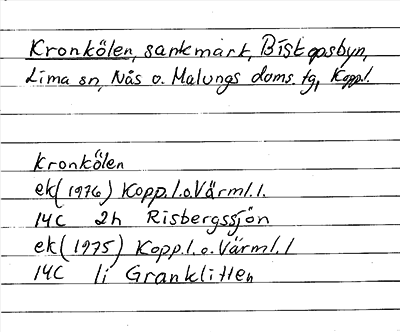 Kronkölen, sankmark, Biskopsbyn,
Lima sn, Nås o. Malungs doms. tg, Kopp.l.
Kronkölen
ek(1976) Kopp.l.o.Värml.l.
14C 2h Risbergssjön
ek(1975) Kopp.l.o.Värml.l
14C 1i Granklitten